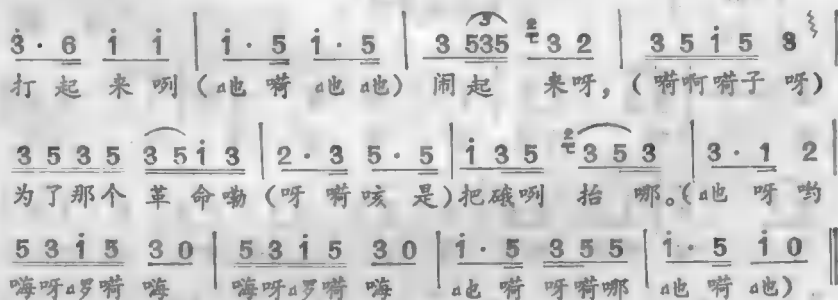 3 · 6 i i | i · 5 i · 5 | 3 535 3 2 | 3 5 i 5 3 |
打起来咧(吔嗬吔吔)闹起来呀,(嗬啊嗬子呀)
3 5 3 5 3 5 i 3 | 2 · 3 5 · 5 | i 3 5 3 5 3 | 3 · 1 2 |
为了那个革命嘞(呀嗬咳是)把硪咧抬哪。(吔呀哟
5 3 i 5 3 0 | 5 3 i 5 3 0 | i · 5 3 5 5 | i · 5 i 0 ‖
嗨呀啰嗬嗨嗨呀啰嗬嗨吔嗬呀嗬哪吔嗬吔)